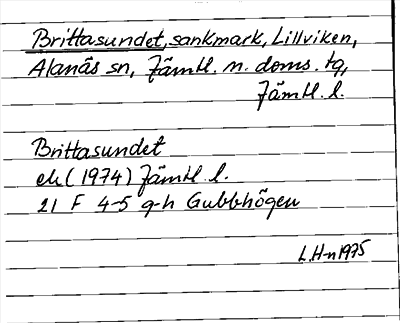 Brittasundet, sankmark, Lillviken,
Alanäs sn, Jämtl. n. doms. tg,
Jämtl. l.
Brittasundet
ek (1974) Jämtl. l.
21 F 4-5 g-h Gubbhögen
L.H-n 1975